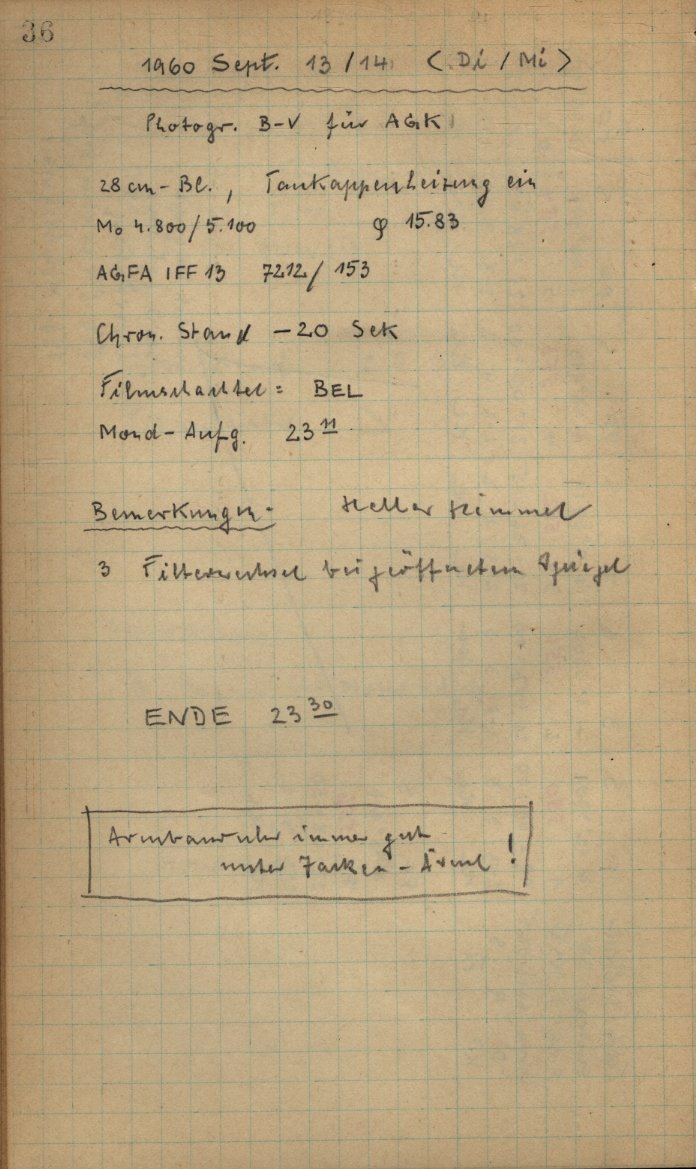 36
1960 Sept. 13/14 (Di/Mi)
Photogr. B-V für AGK
28 cm-Bl., Taukappenheizung ein
Mo 4.800/5.100 φ 15.83
AGFA IFF 13 7212/153
Chron. Stand -20 Sek
Filmschachtel = BEL
Mond-Aufg. 23 11
Bemerkungen: Heller Himmel
3 Filterwechsel bei geöffnetem Spiegel
ENDE 23 30
Armbanduhr immer gut
unter Jacken-Ärmel !